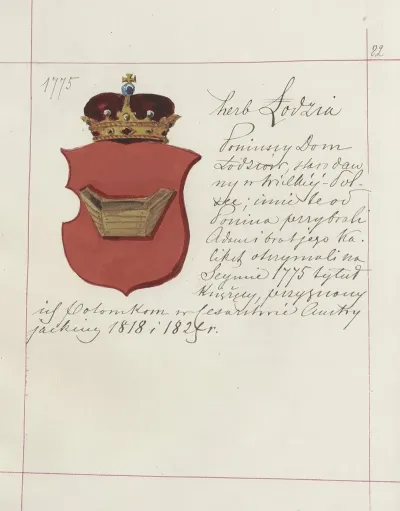 22
1775
herb Łodzia
Poninscy Dom
Łodziów, staroda
wny w Wielkiéj-Pol-
sce; imie te od
Ponina przybrali
Adam i brat jego Ka-
likst otrzymali na
Seymie 1775 tytuł
Książęcy, przyznany
ich Potomkom w Cesarstwie Austry
jackim 1818 i 1824 r.